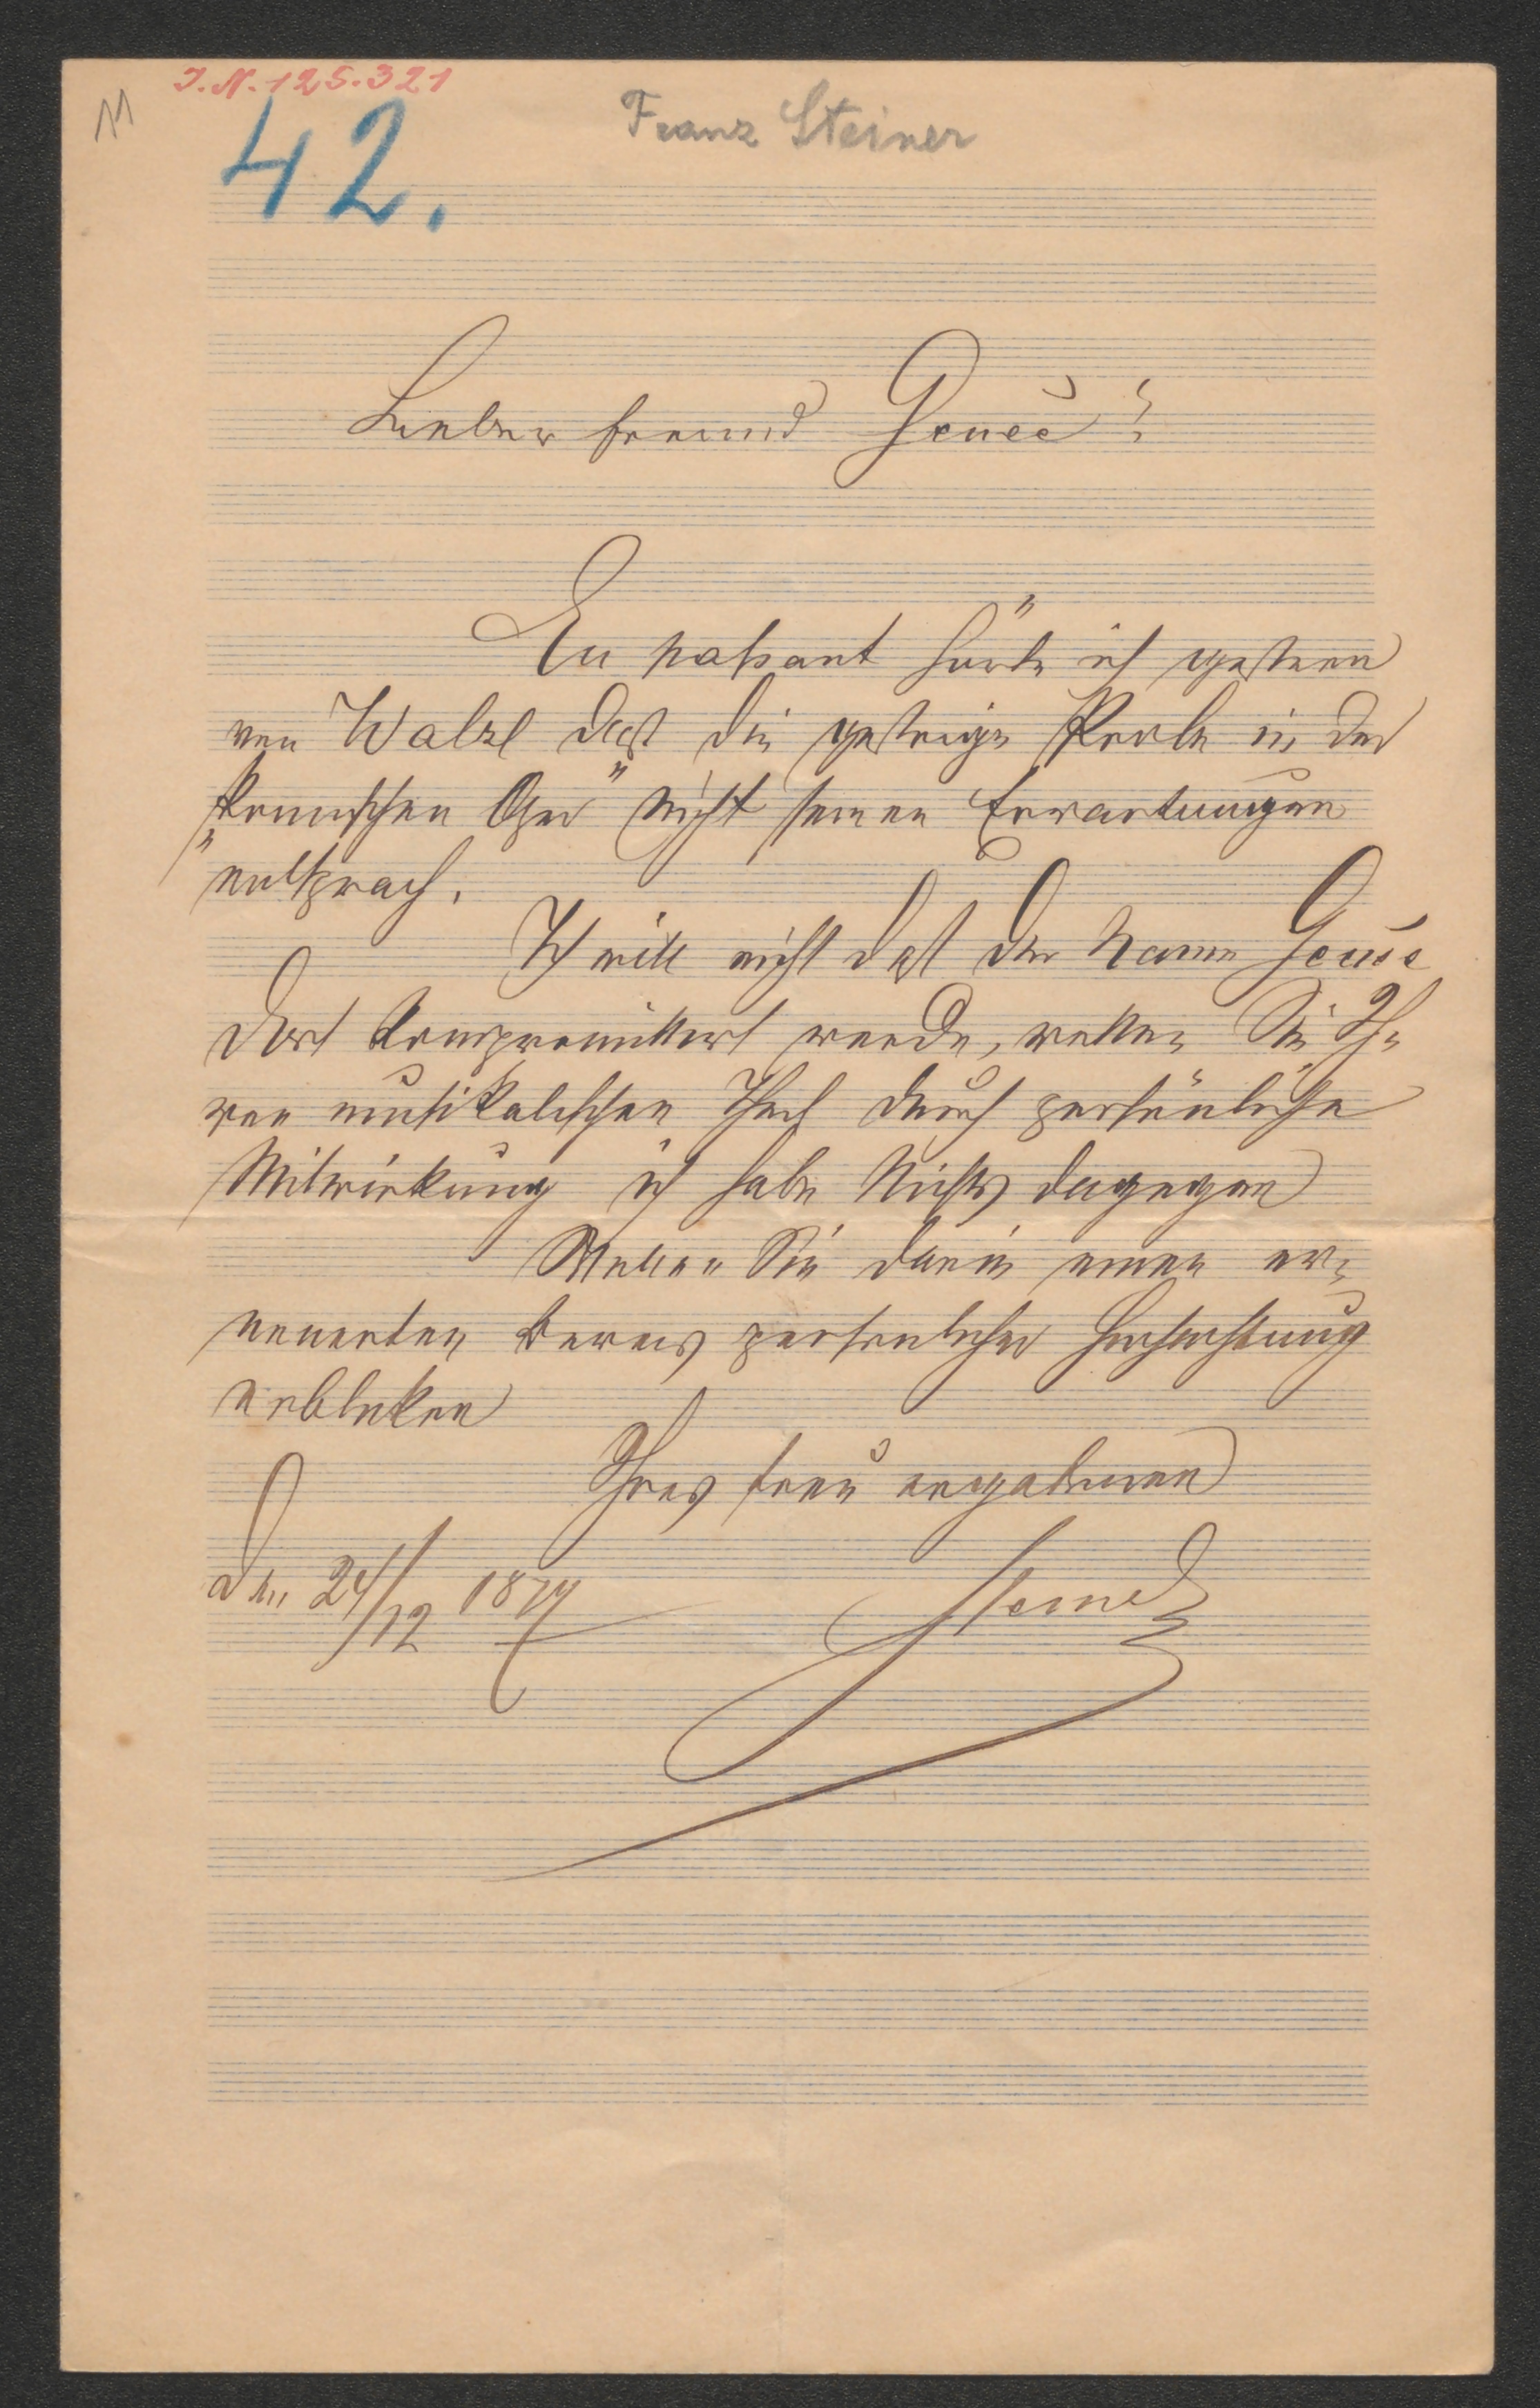 J.N. 125.321
42.
Franz Steiner
Lieber Freund Genée!
En passant hörte ich gestern
von Walzl daß die gestrige Probe in der
"Komischen Oper" nicht seinen Erwartungen
entsprach.
Ich will nicht daß der Name Genée
dort kompromittiert werde, retten Sie Ih-
ren musikalischen Theil durch persönliche
Mitwirkung ich habe Nichts dagegen
Wollen Sie darin einen er-
neuerten Beweis persönlicher Hochachtung
erblicken
Ihres treu ergebenen
Steiner
den 24/12 1874